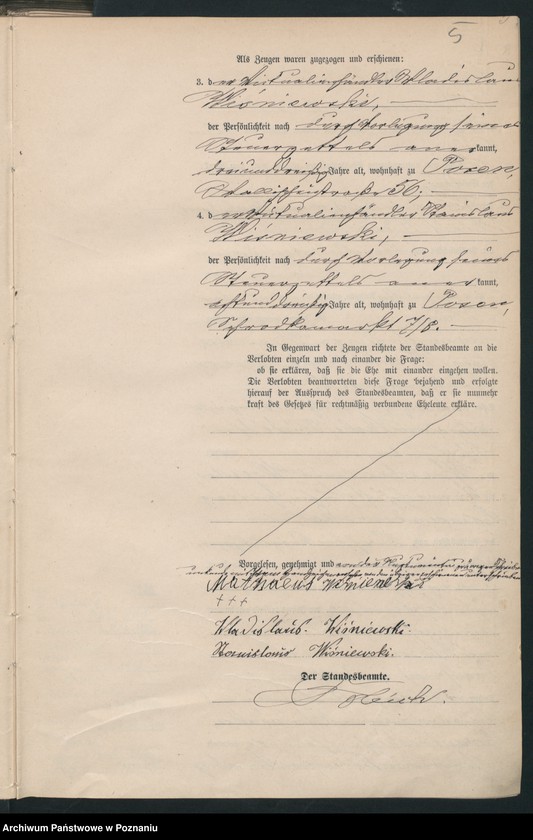 5
Als Zeugen waren zugezogen und erschienen:
3. der Victualienhändler Wladislaus
Wiśniewski,
der Persönlichkeit nach durch Vorlegung seines
Steuerzettels anerkannt,
dreiunddreißig Jahre alt, wohnhaft zu Posen,
56;
4. der Victualienhändler Stanislaus
Wiśniewski,
der Persönlichkeit nach durch Vorlegung seines
Steuerzettels anerkannt,
achtunddreißig Jahre alt, wohnhaft zu Posen,
Schrodkamarkt 7/8.
In Gegenwart der Zeugen richtete der Standesbeamte an die
Verlobten einzeln und nach einander die Frage:
ob sie erklären, daß sie die Ehe mit einander eingehen wollen.
Die Verlobten beantworteten diese Frage bejahend und erfolgte
hierauf der Ausspruch des Standesbeamten, daß er sie nunmehr
kraft des Gesetzes für rechtmäßig verbundene Eheleute erkläre.
Vorgelesen, genehmigt und von der
Mathaeus Wiśniewski
+++
Wladislaus Wiśniewski.
Stanislaus Wiśniewski.
Der Standesbeamte.
Archiwum Państwowe w Poznaniu